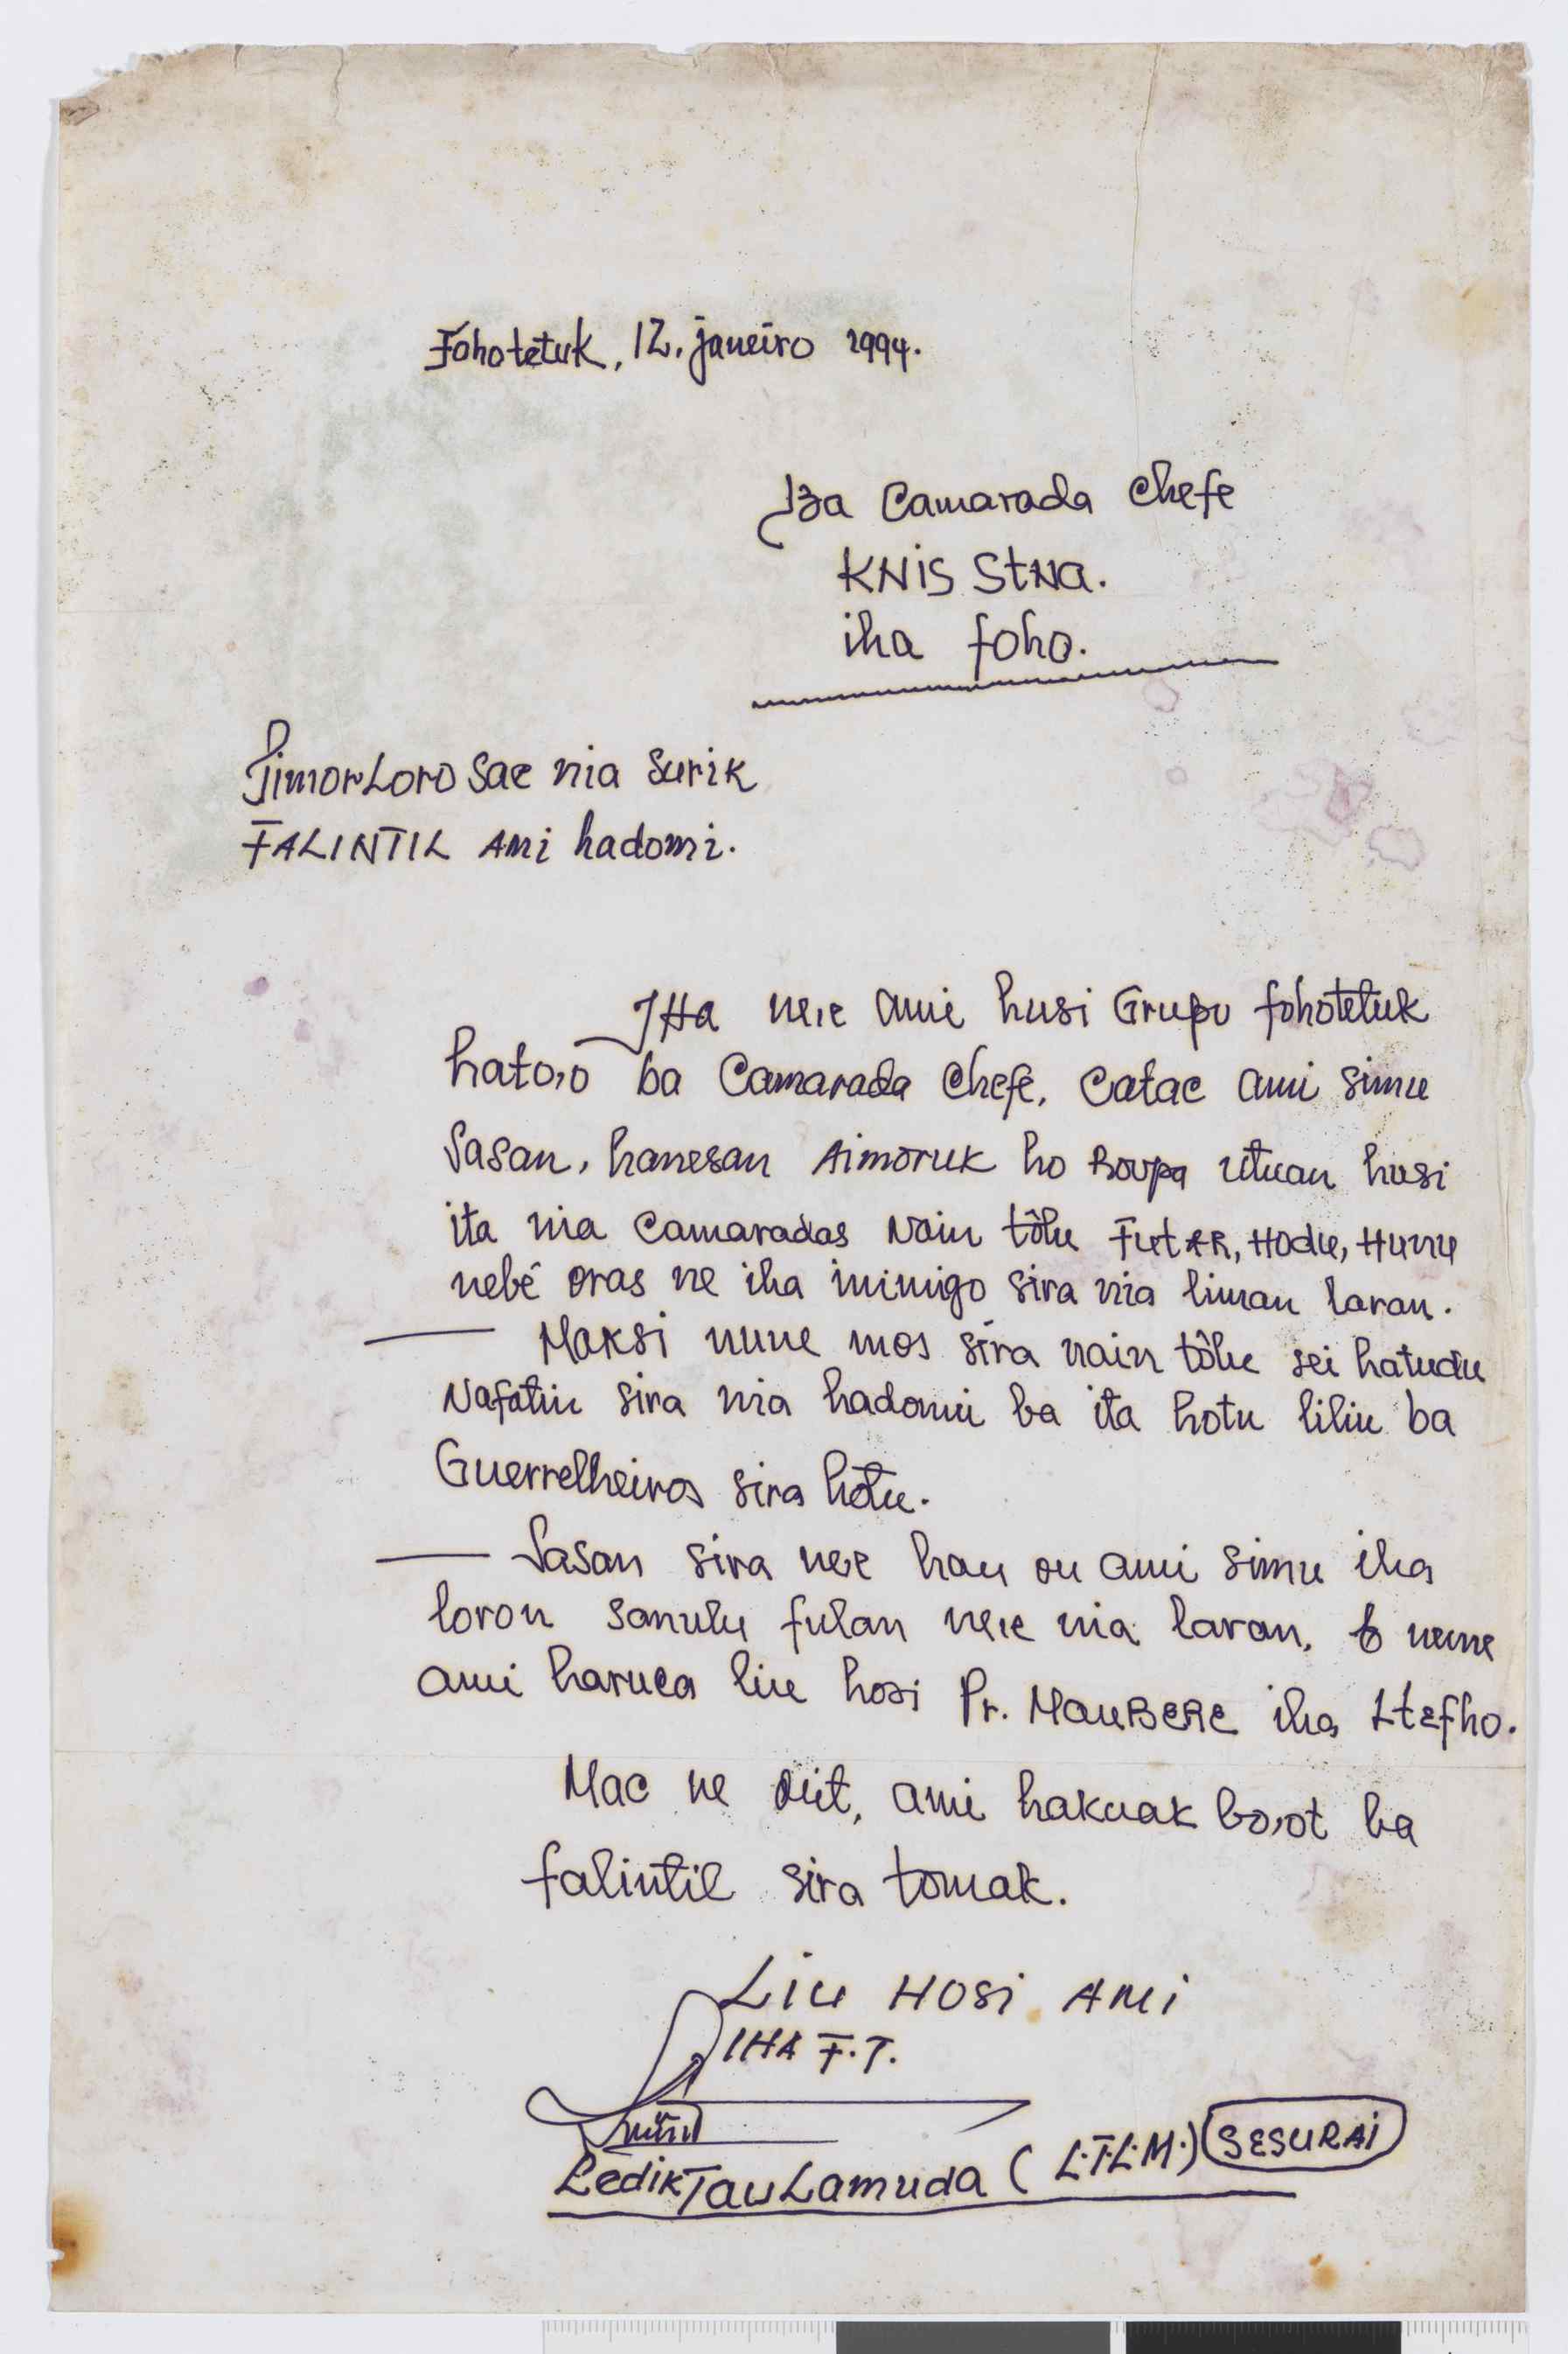 Fohotetuk, 12. janeiro 1994.
Ba Camarada Chefe
KNIS StNa.
iha foho.
Timor Loro Sae nia Surik
FALINTIL AMi hadomi.
IHa ne,e ami husi Grupo fohotetuk
hato,o ba Camarada Chefe, Catac ami simu
Sasan, hanesan Aimoruk ho Roupa utuan husi
ita nia Camaradas Nain tôlu FutAR, Hodu, Hunu
nebé oras ne iha inimigo sira nia liman laran.
— Maksi nune mos sira nain tôlu sei hatudu
Nafatin sira nia hadomi ba ita hotu liliu ba
Guerrelheiros sira hotu.
— Sasan sira ne,e hau ou ami simu iha
loron sanulu fulan ne,e nia laran, nune
ami haruca liu hosi Pr. MauBeRe iha Ltefho.
Mac ne deit, ami hakuak bo,ot ba
falintil sira tomak.
Liu HOSi AMi
IHA F.T.
LedikTauLamuda (L.T.L.M.) SESURAi